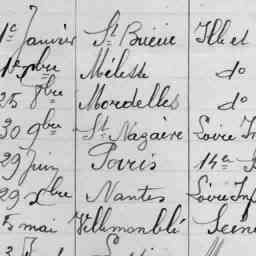 1er Janvier St Brieuc Ille et
Mélesse do
25 8bre Mordelles do
30 9bre St Nazaire Loire In
29 Juin Paris 14e
29 Xbre Nantes Loire Inf
5 mai Villemomblé Seine